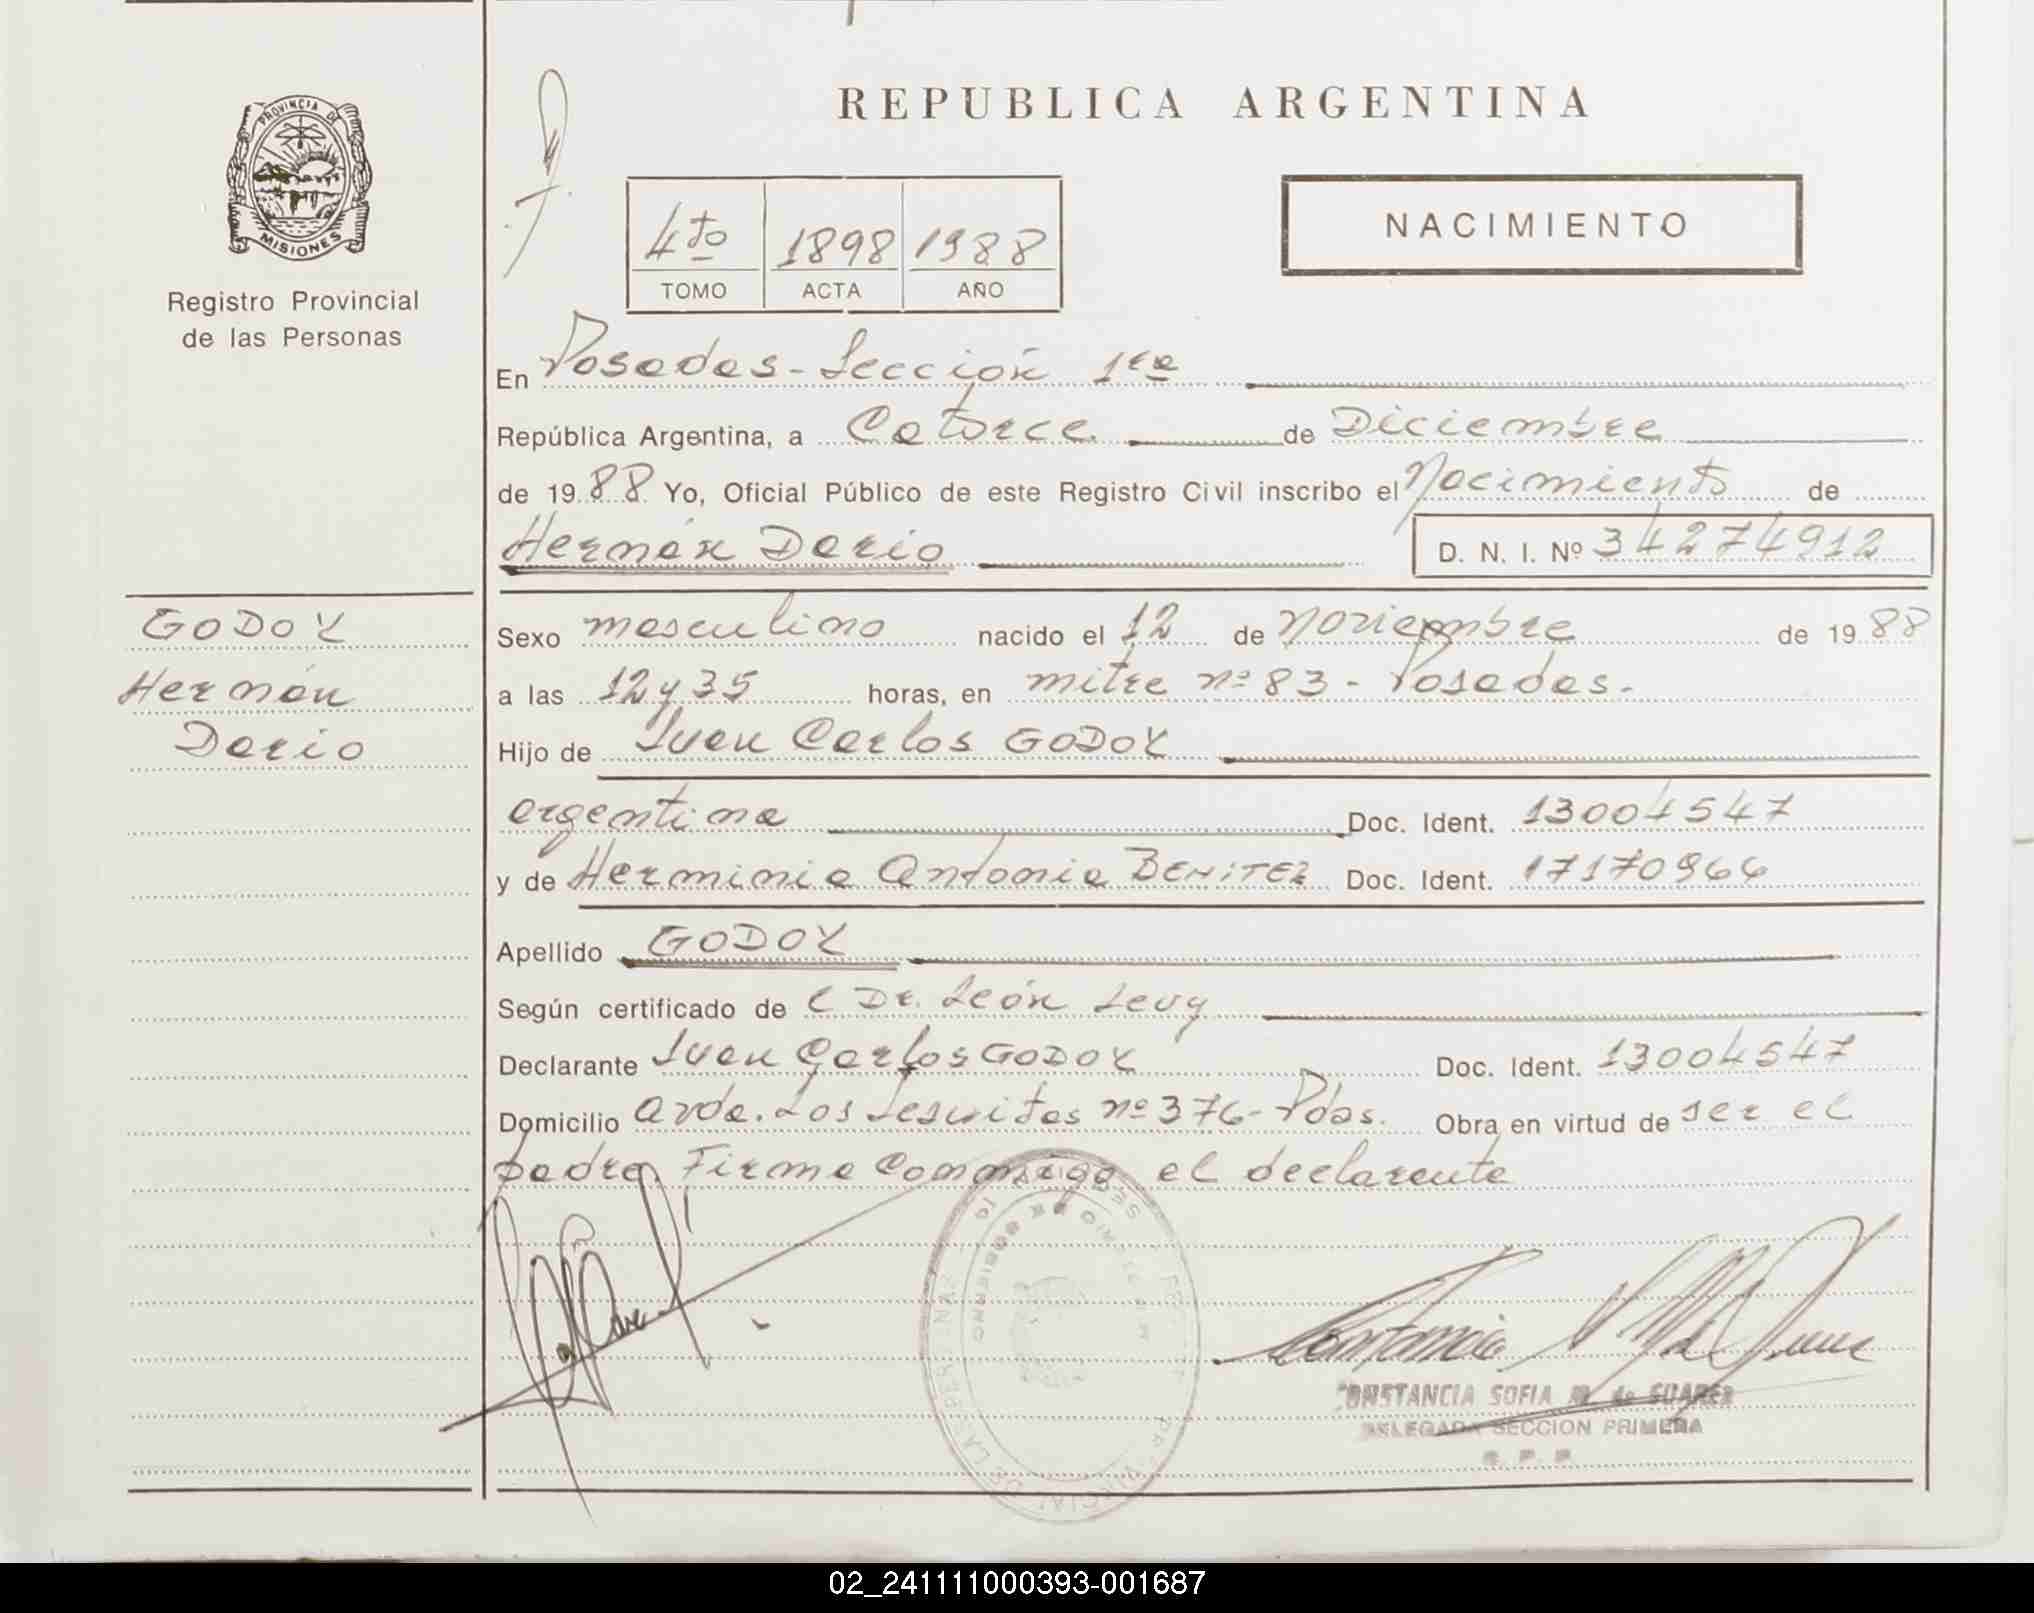 PROVINCIA DE
MISIONES
Registro Provincial
de las Personas
REPUBLICA ARGENTINA
NACIMIENTO
4to 1898 1988
TOMO ACTA AÑO
En Posadas - Sección 1ra
República Argentina, a Catorce de Diciembre
de 1988 Yo, Oficial Público de este Registro Civil inscribo el Nacimiento de
Hernán Dario D. N. I. Nº 34274912
GODOY
Hernán
Dario
Sexo masculino nacido el 12 de Noviembre de 1988
a las 12 y 35 horas, en mitre nº 83 - Posadas.
Hijo de Juan Carlos GODOY
argentina Doc. Ident. 13004547
y de Herminia Antonia BENITEZ Doc. Ident. 17170966
Apellido GODOY
Según certificado de l Dr. León Levy
Declarante Juan Carlos GODOY Doc. Ident. 13004547
Domicilio Avda. Los Jesuitas nº 376 - Pdas. Obra en virtud de ser el
padre. Firma Conmigo el declarante
CONSTANCIA SOFIA M. de SUAREZ
DELEGADA SECCION PRIMERA
R. P. P.
02_241111000393-001687